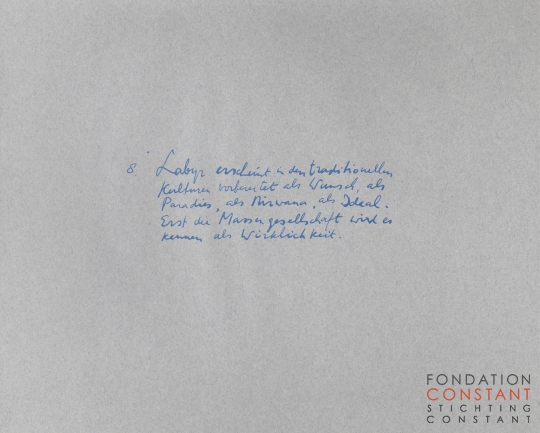 8. Labyr erscheint in den traditionellen
Kulturen vorbereitet als Wunsch, als
Paradies, als Nirwana, als Ideal.
Erst die Massengesellschaft wird es
kennen als Wirklichkeit.
FONDATION
CONSTANT
STICHTING
CONSTANT